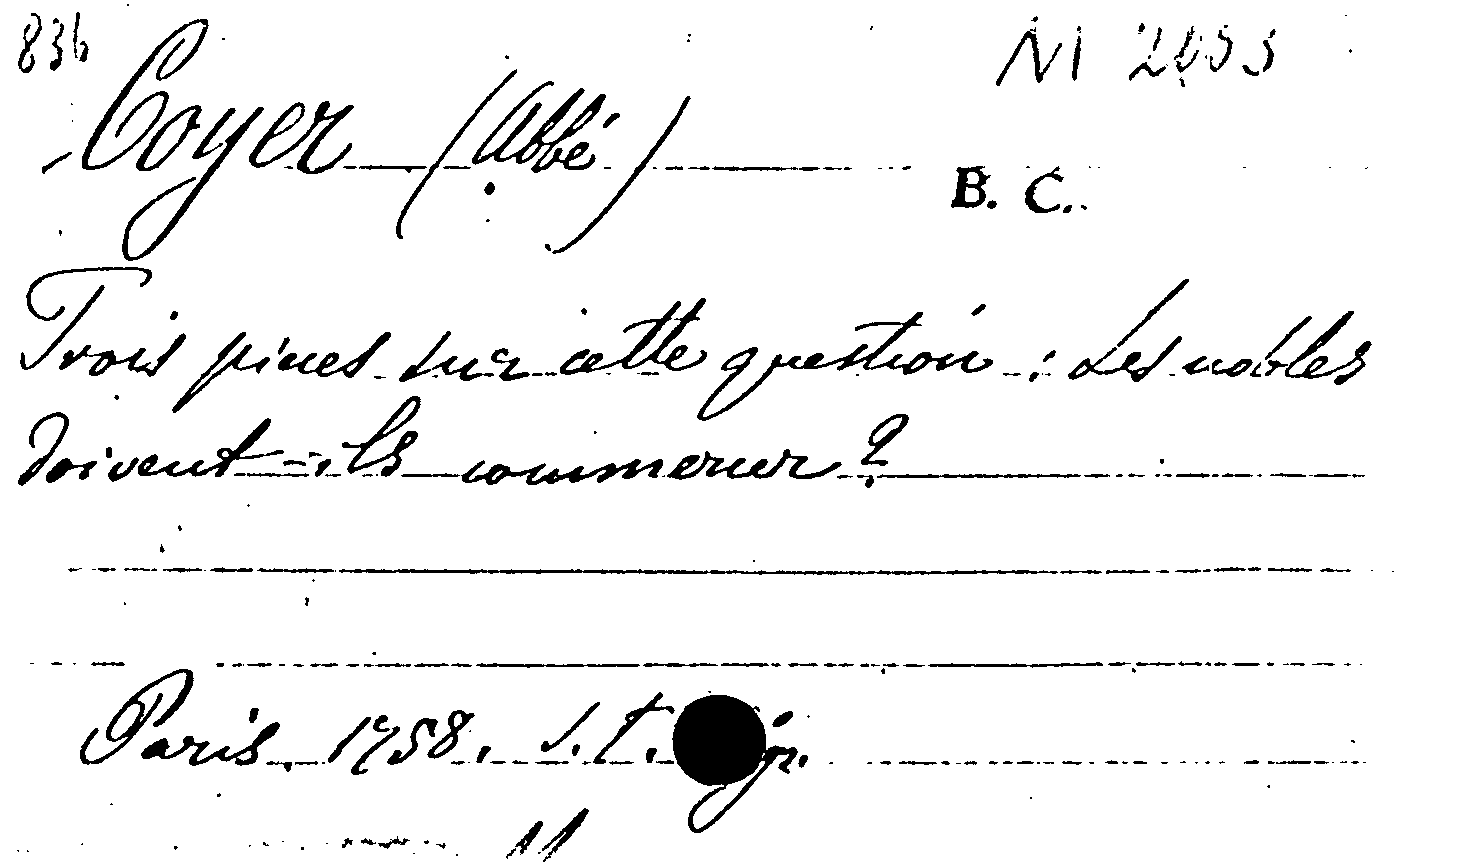 836
Coyer (Abbé)
B. C.
Trois pièces sur cette question : Les nobles
doivent-ils commercer ?
Paris. 1758. s.t.